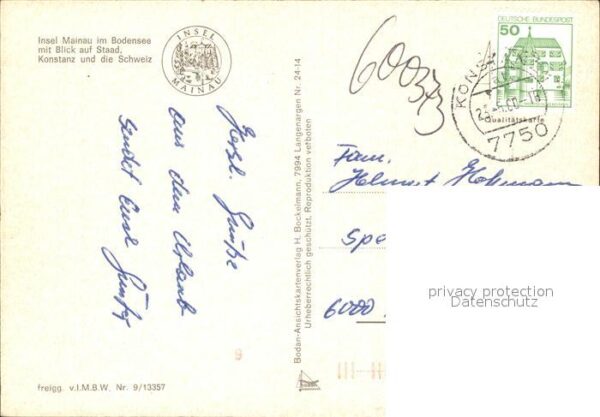 Insel Mainau im Bodensee
mit Blick auf Staad,
Konstanz und die Schweiz
INSEL
MAINAU
Herzl. Grüße
aus dem Urlaub
sendet Eure
freigg. v.I.M.B.W. Nr. 9/13357
9
Bodan-Ansichtskartenverlag H. Bockelmann, 7994 Langenargen Nr. 24-14
Urheberrechtlich geschützt, Reproduktion verboten
DEUTSCHE BUNDESPOST
50
7750
Qualitätskarte
Fam.
Helmut
6000
privacy protection
Datenschutz